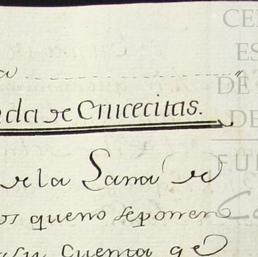 a
nda de Crucecitas.
de la Lana de
os que no se ponen
a su Cuenta qe
CE
ES
DE
DE
FU